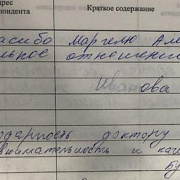 рес
пондента
Краткое содержание
асибо Маргелю Але
льное отношение
Иванова
одарность доктору
внимательность и
бу